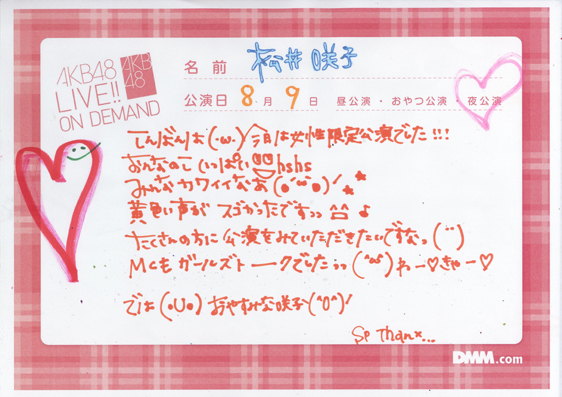 AKB48
LIVE!!
ON DEMAND
AKB
48
名前 松井咲子
公演日 8月9日 昼公演・おやつ公演・夜公演
こんばんは(・ω・) 今日は女性限定公演でした!!!
おんなのこいっぱい hshs
みんなカワイイなあ(●´ω`●)!
黄色い声がスゴかったですっっ ^^ ♪
たくさんの方に公演をみていただきたいですなっ(¨)
MCもガールズトークでしたぅっ(^ω^)わー♡きゃー♡
では(・U・)おやすみな咲子(^0^)!
Sp Thanx...
DMM.com